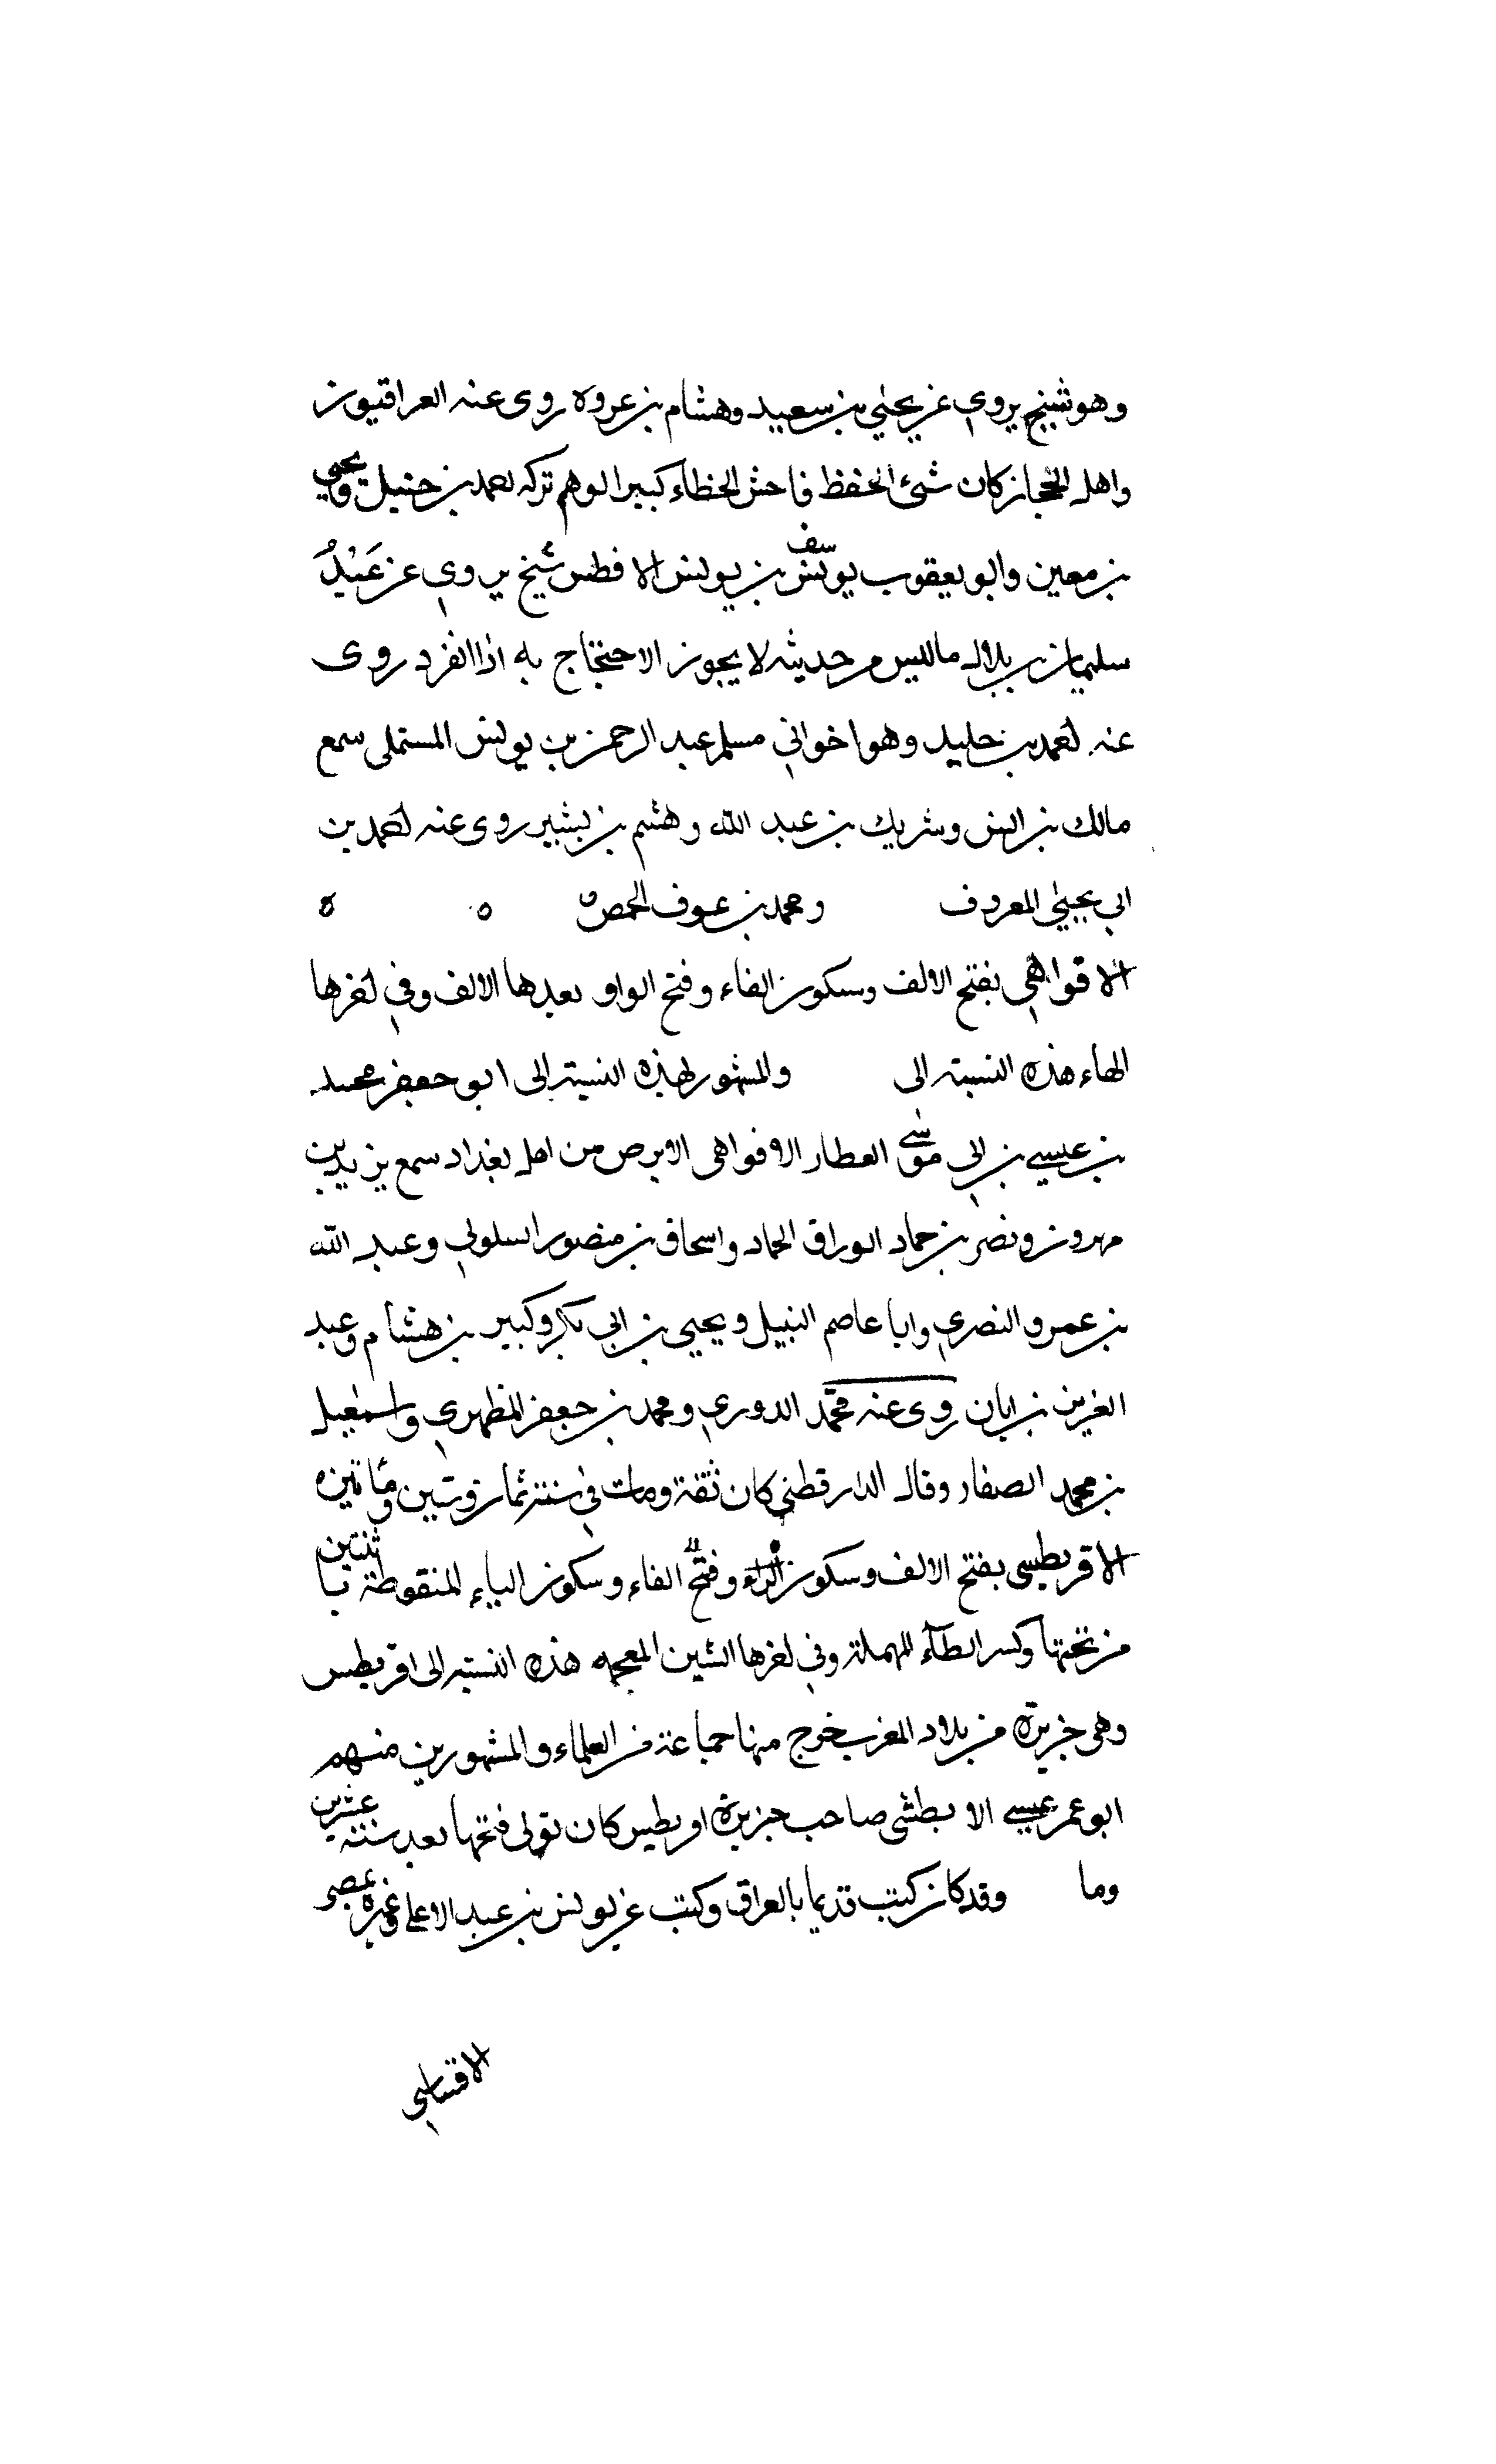 وهو شيخ يروي عن يحيى بن سعيد وهشام بن عروة روى عنه العراقيون
واهل الحجاز كان سئ الحفظ فاحش الخطاء كبير الوهم تركه احمد بن حنبل ويحيى
بن معين وابو يعقوب يوسف بن يونس الافطس شيخ يروي عن
سليمان بن بلال ما ليس من حديثه لا يجوز الاحتجاج به اذا انفرد روى
عنه احمد بن خليد وهو اخو ابي مسلم عبد الرحمن بن يونس المستملى سمع
مالك بن انس وشريك بن عبد الله وهشم بن بشير روى عنه احمد بن
ابي يحيى المعروف ومحمد بن عوف الحمصي ه ه
الافواهي بفتح الالف وسكون الفاء وفتح الواو بعدها الالف وفي اخرها
الهاء هذه النسبة الى والمشهور بهذه النسبة الى ابو جعفر محمد
بن عيسى بن ابي موسى العطار الافواهى الابرص من اهل بغداد سمع يزيد بن
هرون ونصر بن حماد الوراق الحماد واسحاق بن منصور السلولي وعبد الله
بن عمرو النصري وابا عاصم النبيل ويحيى بن ابي بكر وكبير بن هشام وعبد
العزيز بن ابان روى عنه محمد الدوري ومحمد بن جعفر المطهري واسمعيل
بن محمد الصفار وقال الدارقطني كان ثقة ومات في سنة ثمان وستين ومائتين
الاقريطيسى بفتح الالف وسكون الراء وفتح الفاء وسكون الياء المنقوطة با ثنتين
من تحتها وكسر الطاء المهملة وفي اخرها الشين المعجمه هذه النسبة الى اقريطس
وهى جزيرة من بلاد المغرب خرج منها جماعة من العلماء والمشهورين منهم
ابو عمر عيسى الا بطشى صاحب جزيرة اوريطيس كان تولى فتحها بعد سنة عشرين
وما وقد كان كتب قديما بالعراق وكتب عن يونس بن عبد الاعلى وغيره بمصر
الاقساسي